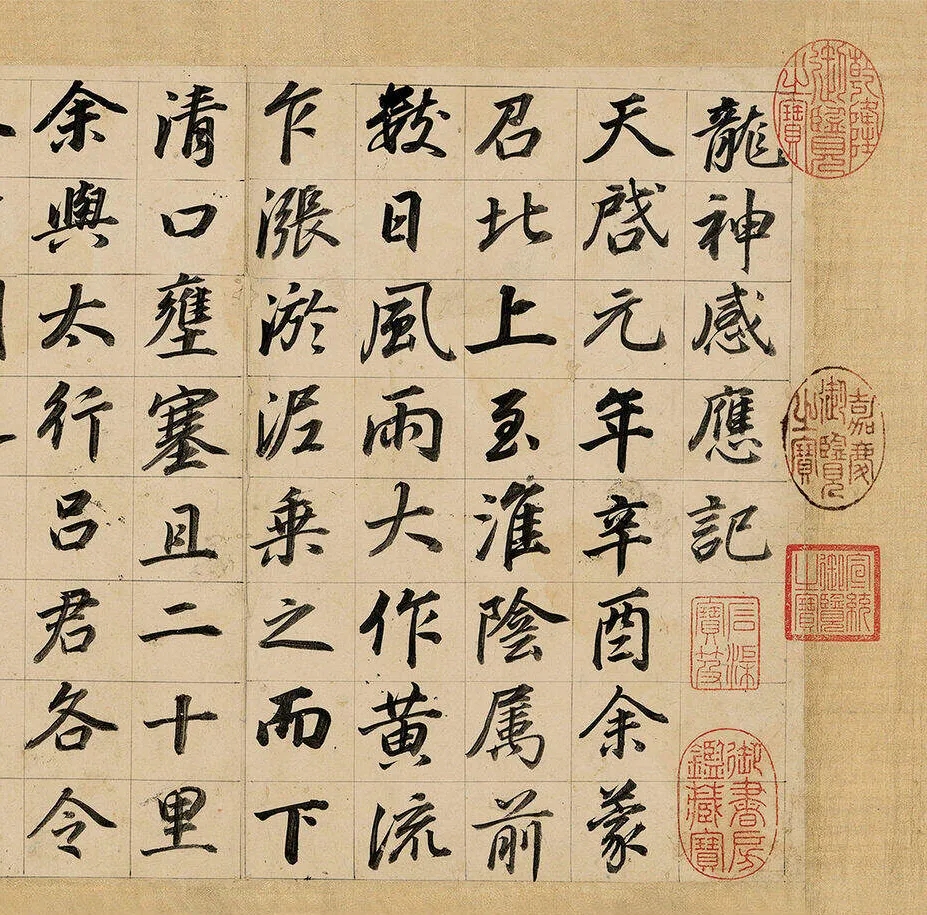 龍神感應記
天啓元年辛酉余蒙
召北上至淮陰属前
數日風雨大作黄流
乍漲淤泥乗之而下
清口壅塞且二十里
余與太行吕君各令
乾隆御覽之寶
嘉慶御覽之寶
宣統御覽之寶
石渠寶笈
御書房鑑藏寶